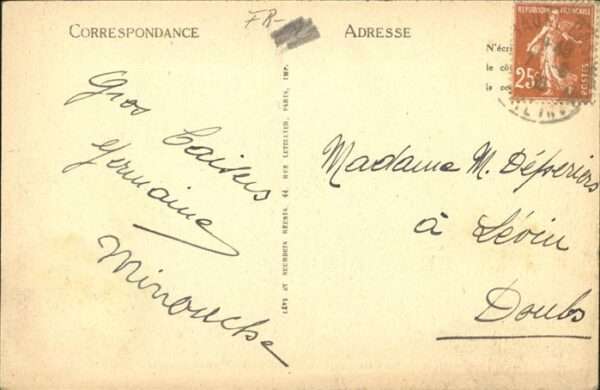 FR-
CORRESPONDANCE
ADRESSE
N'écri
le cô
la co
REPUBLIQUE FRANÇAISE
25c
POSTES
Gros baisers
Germaine
Minouche
LÉVY ET NEURDEIN RÉUNIS, 44, RUE LETELLIER, PARIS, IMP.
Madame M.
à Lévin
Doubs